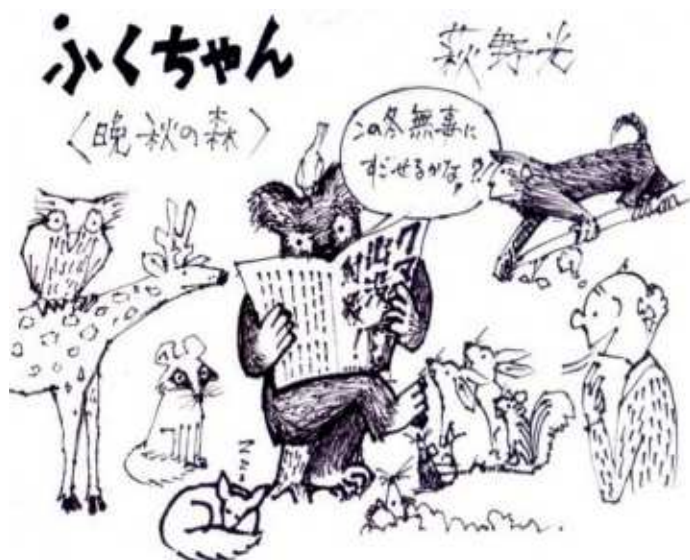 ふくちゃん
荻野光
〈晩秋の森〉
この冬無事に
すごせるかな⁇
クマ
出没
対策
N